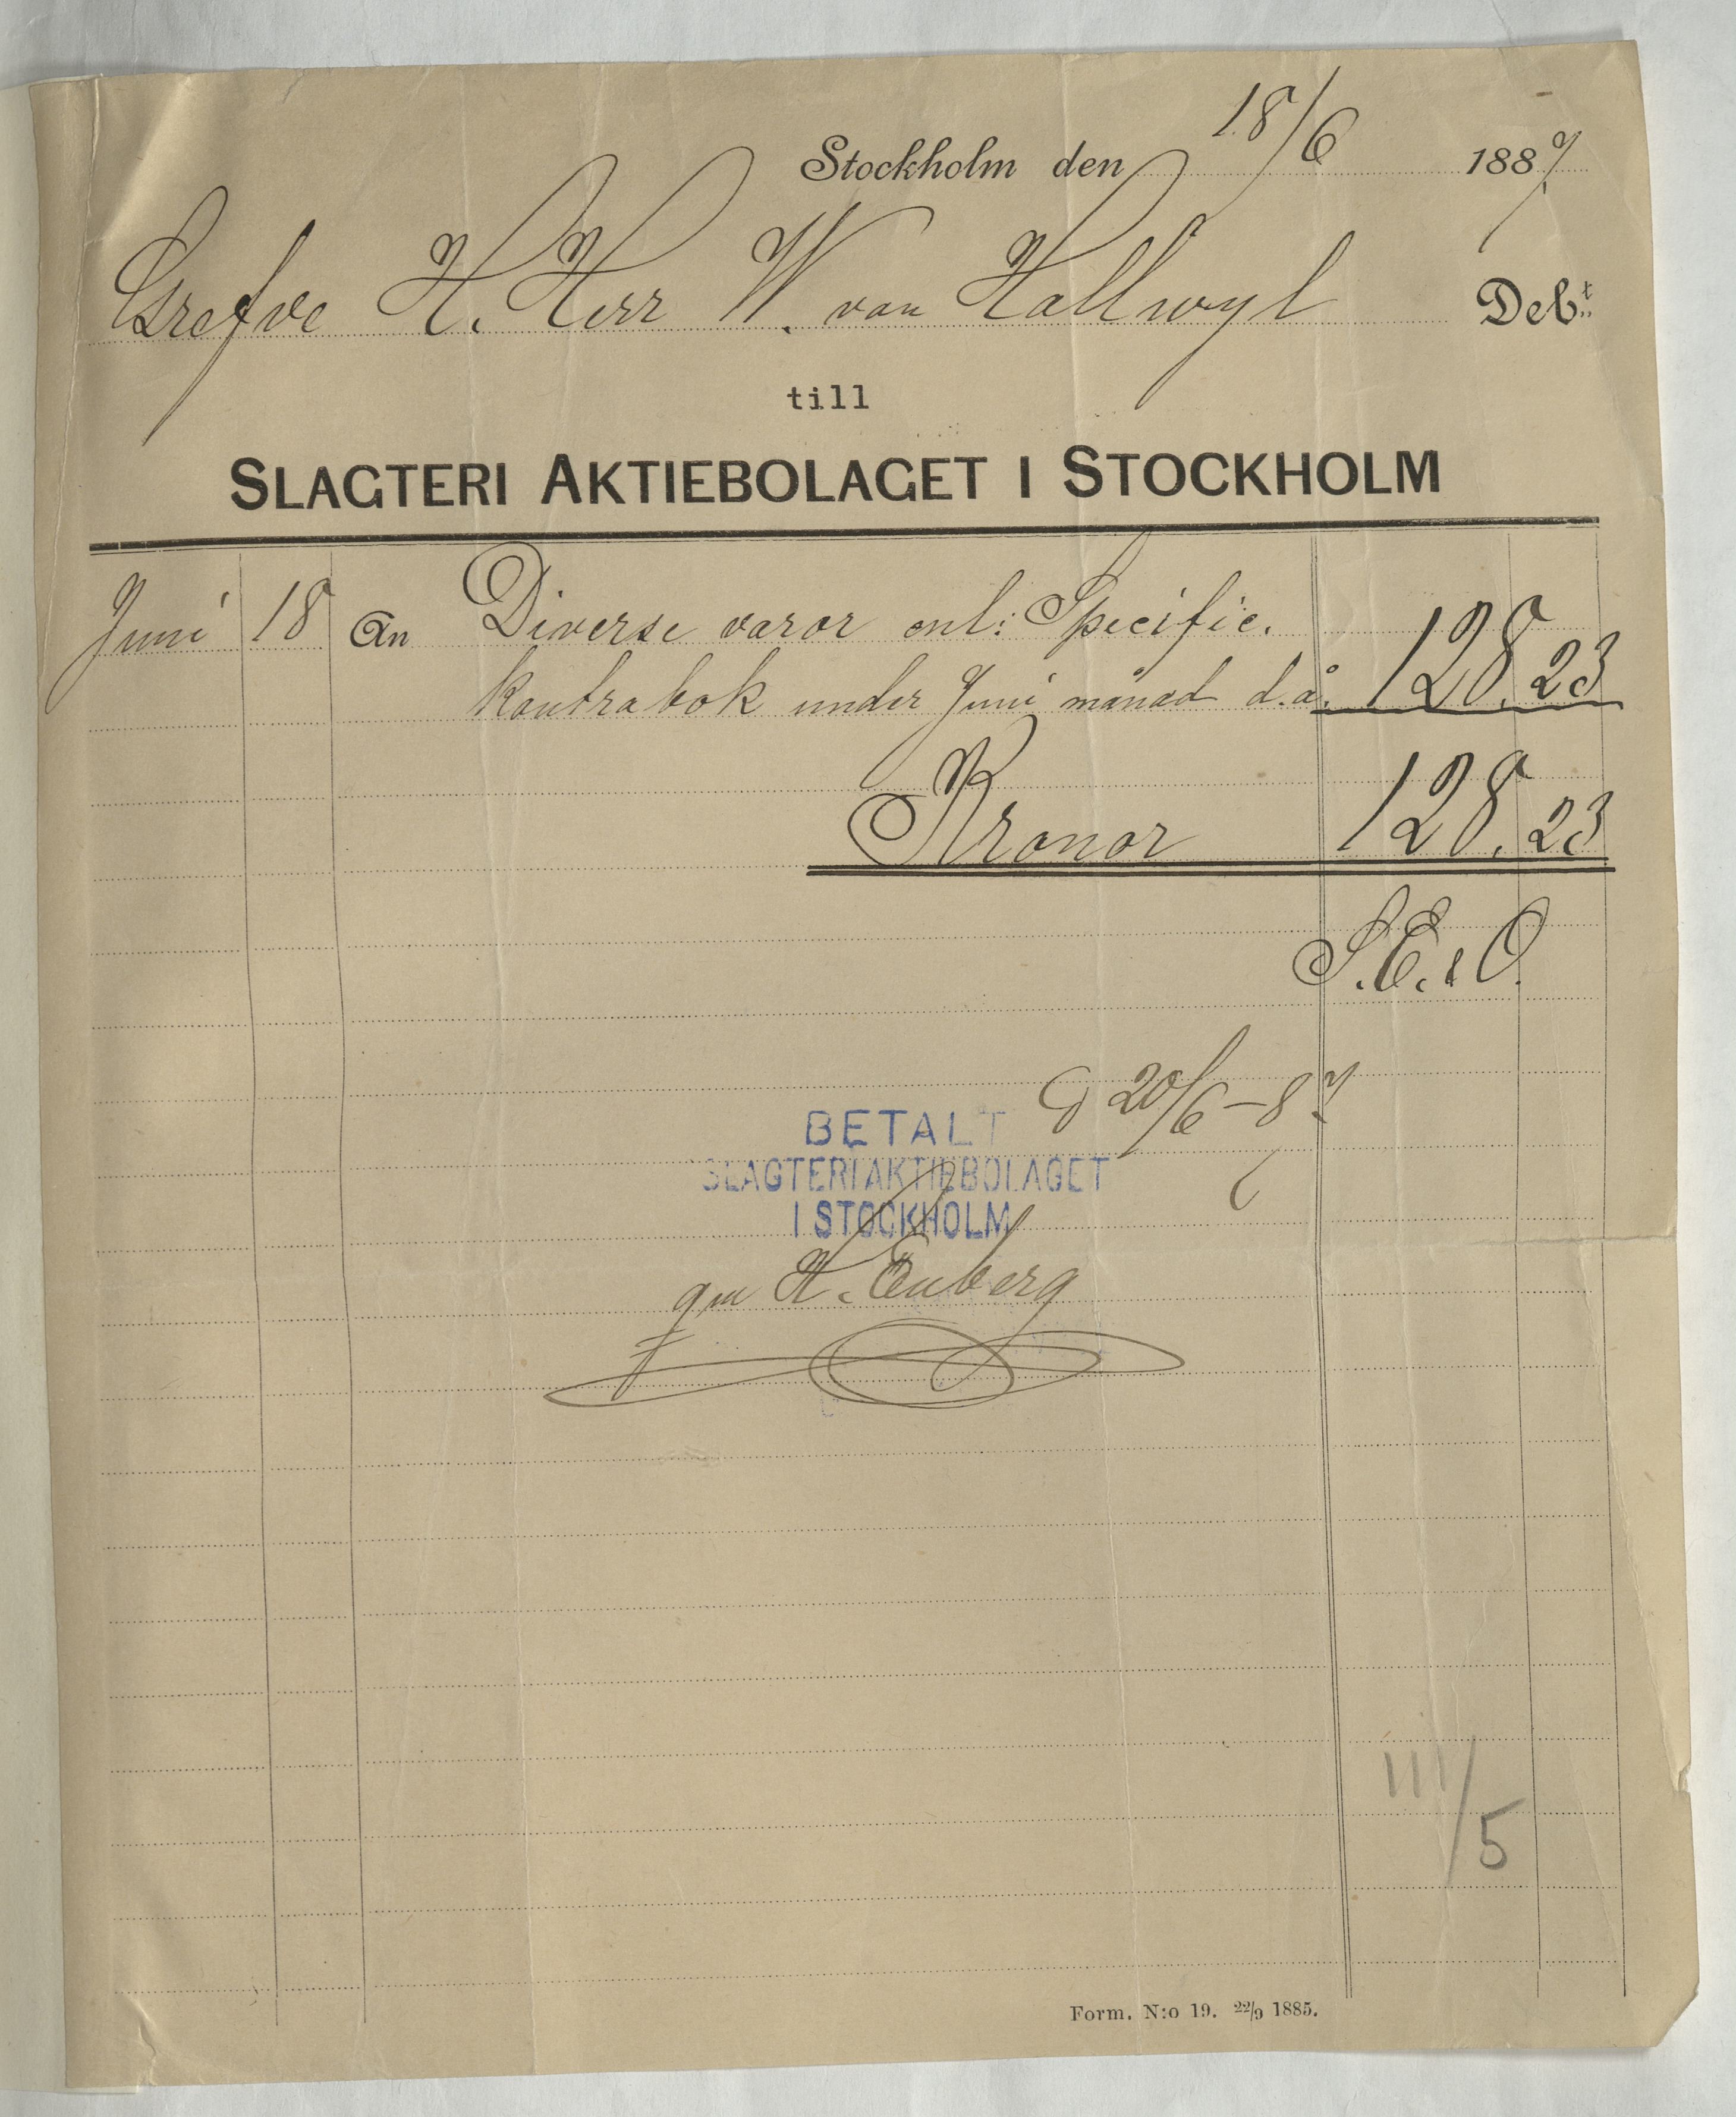 Stockholm den 18/6 1887.
Grefve H. Herr W. von Hallwyl Deb:t
till
SLAGTERI AKTIEBOLAGET I STOCKHOLM
Juni 18 An Diverse varor enl: Specific.
kontrabok under Juni månad d.å. 128.23
Kronor 128.23
S.E. & O.
20/6-87
BETALT
SLAGTERIAKTIEBOLAGET
I STOCKHOLM
gm H. Enberg
111/5
Form. N:o 19. 22/9 1885.